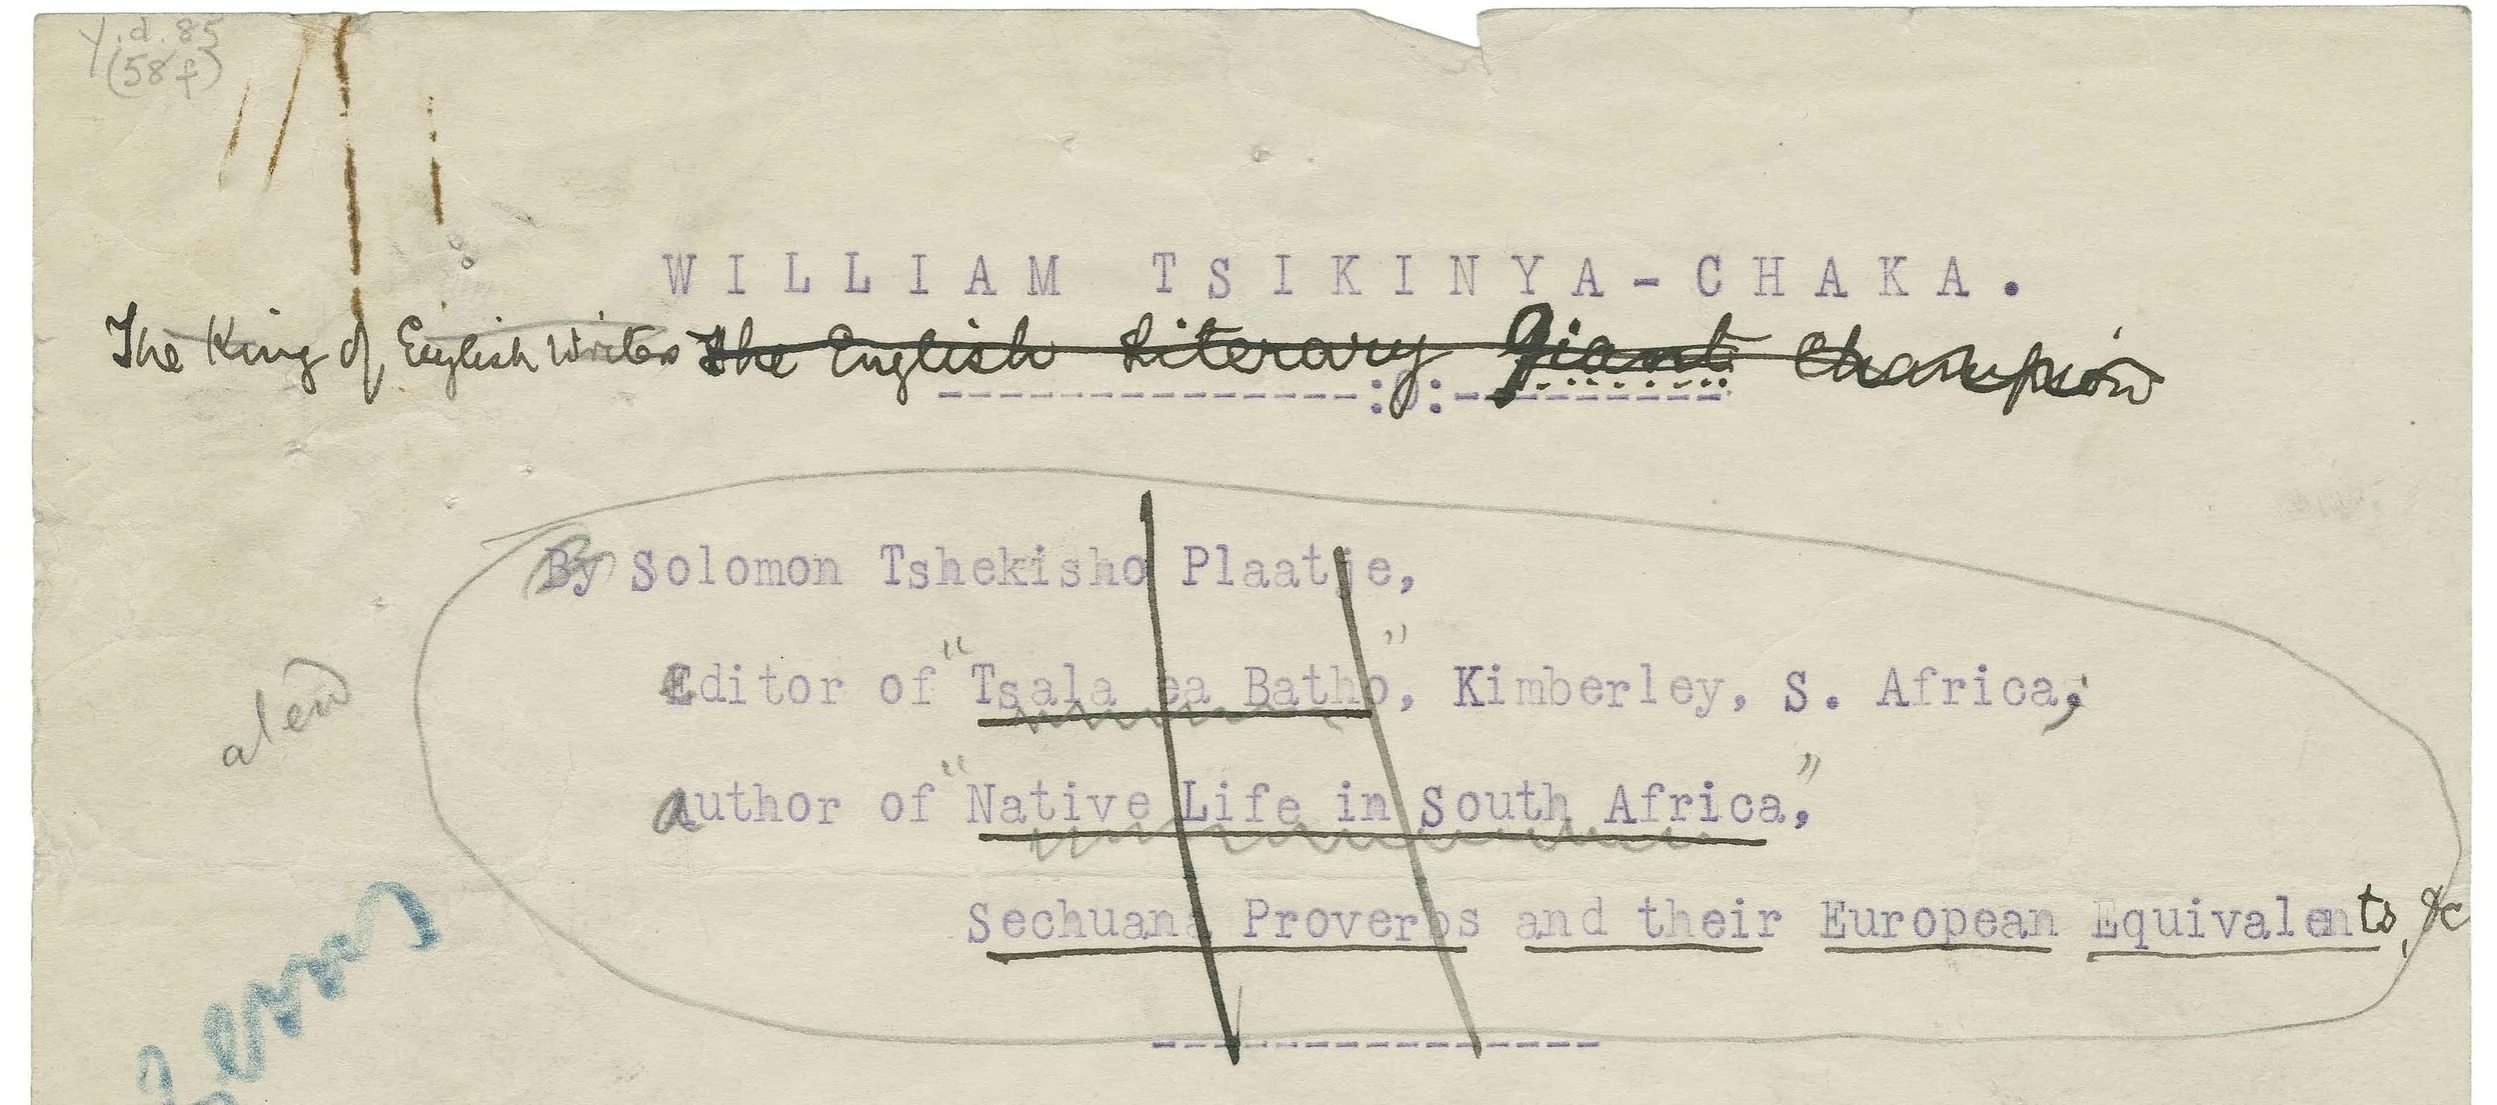 y.d.85
(58f)
WILLIAM TSIKINYA-CHAKA.
The King of English Writers The English Literary Giant Champion
---------------:0:-----------
By Solomon Tshekisho Plaatje,
Editor of "Tsala ea Batho", Kimberley, S. Africa;
author of "Native Life in South Africa,"
Sechuana Proverbs and their European Equivalents, &c
----------------